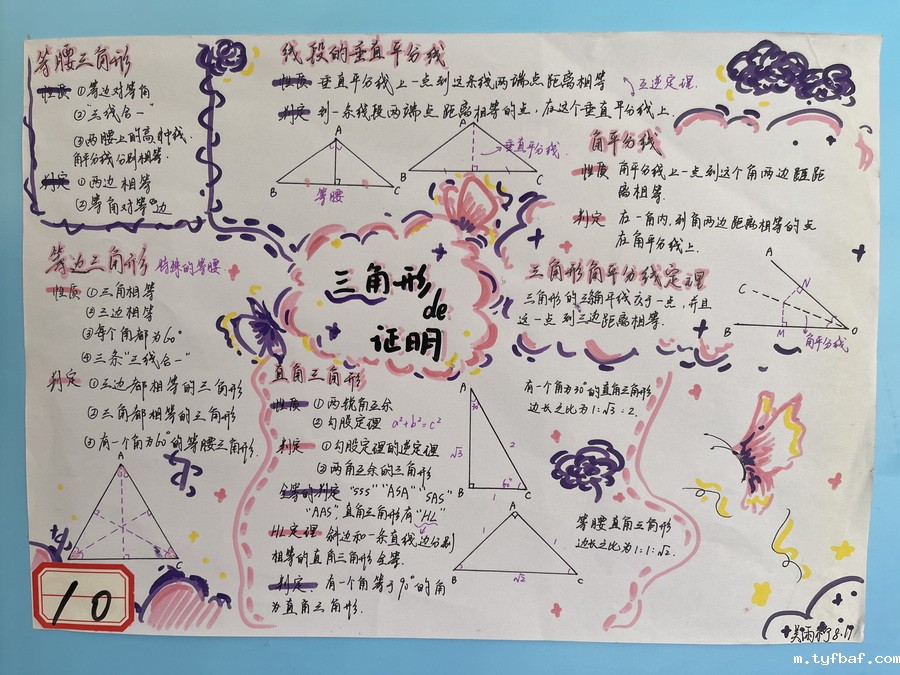 等腰三角形
性质 ①等边对等角
②"三线合一"
③两腰上的高,中线,
角平分线分别相等.
判定 ①两边相等
②等角对等边
线段的垂直平分线
性质 垂直平分线上一点到这条线两端点距离相等
互逆定理.
判定 到一条线段两端点距离相等的点,在这个垂直平分线上.
A
B
C
等腰
A
B
C
垂直平分线.
角平分线
性质 角平分线上一点到这个角两边距距
离相等.
判定 在一角内,到角两边距离相等的点
在角平分线上.
等边三角形 特殊的等腰
性质 ①三角相等
②三边相等
③每个角都为60°
④三条"三线合一"
判定 ①三边都相等的三角形
②三角都相等的三角形
③有一个角为60°的等腰三角形.
A
C
三角形
de
证明
三角形角平分线定理
三角形的三角平线交于一点,并且
这一点到三边距离相等.
A
C
N
B
M
O
角平分线
直角三角形
性质 ①两锐角互余
②勾股定理 a²+b²=c²
判定 ①勾股定理的逆定理
②两角互余的三角形
全等的判定 "SSS" "ASA" "SAS"
"AAS" 直角三角形有"HL"
HL定理 斜边和一条直线边分别
相等的直角三角形全等.
判定. 有一个角等于90°的角
为直角三角形.
A
30°
√3
2
60°
B
1
C
有一个角为30°的直角三角形
边长之比为1:√3:2.
A
1
1
B
√2
C
等腰直角三角形
边长之比为1:1:√2.
10
8.17
m.tyfbaf.com